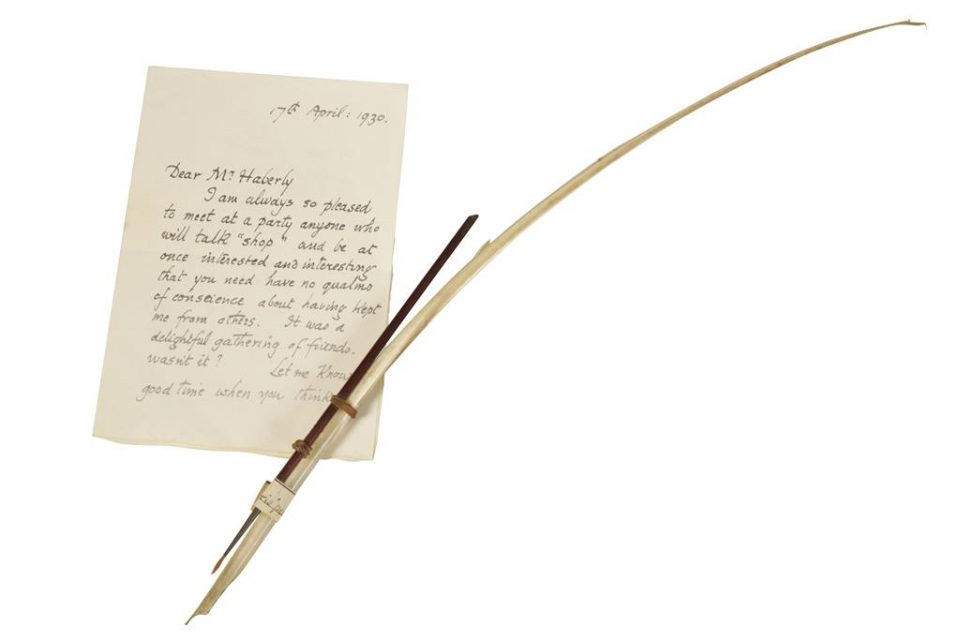 17th April : 1930.
Dear Mr. Haberly
I am always so pleased
to meet at a party anyone who
will talk "shop" and be at
once interested and interesting
that you need have no qualms
of conscience about having kept
me from others. It was a
delightful gathering of friends,
wasn't it? Let me know
good time when you think